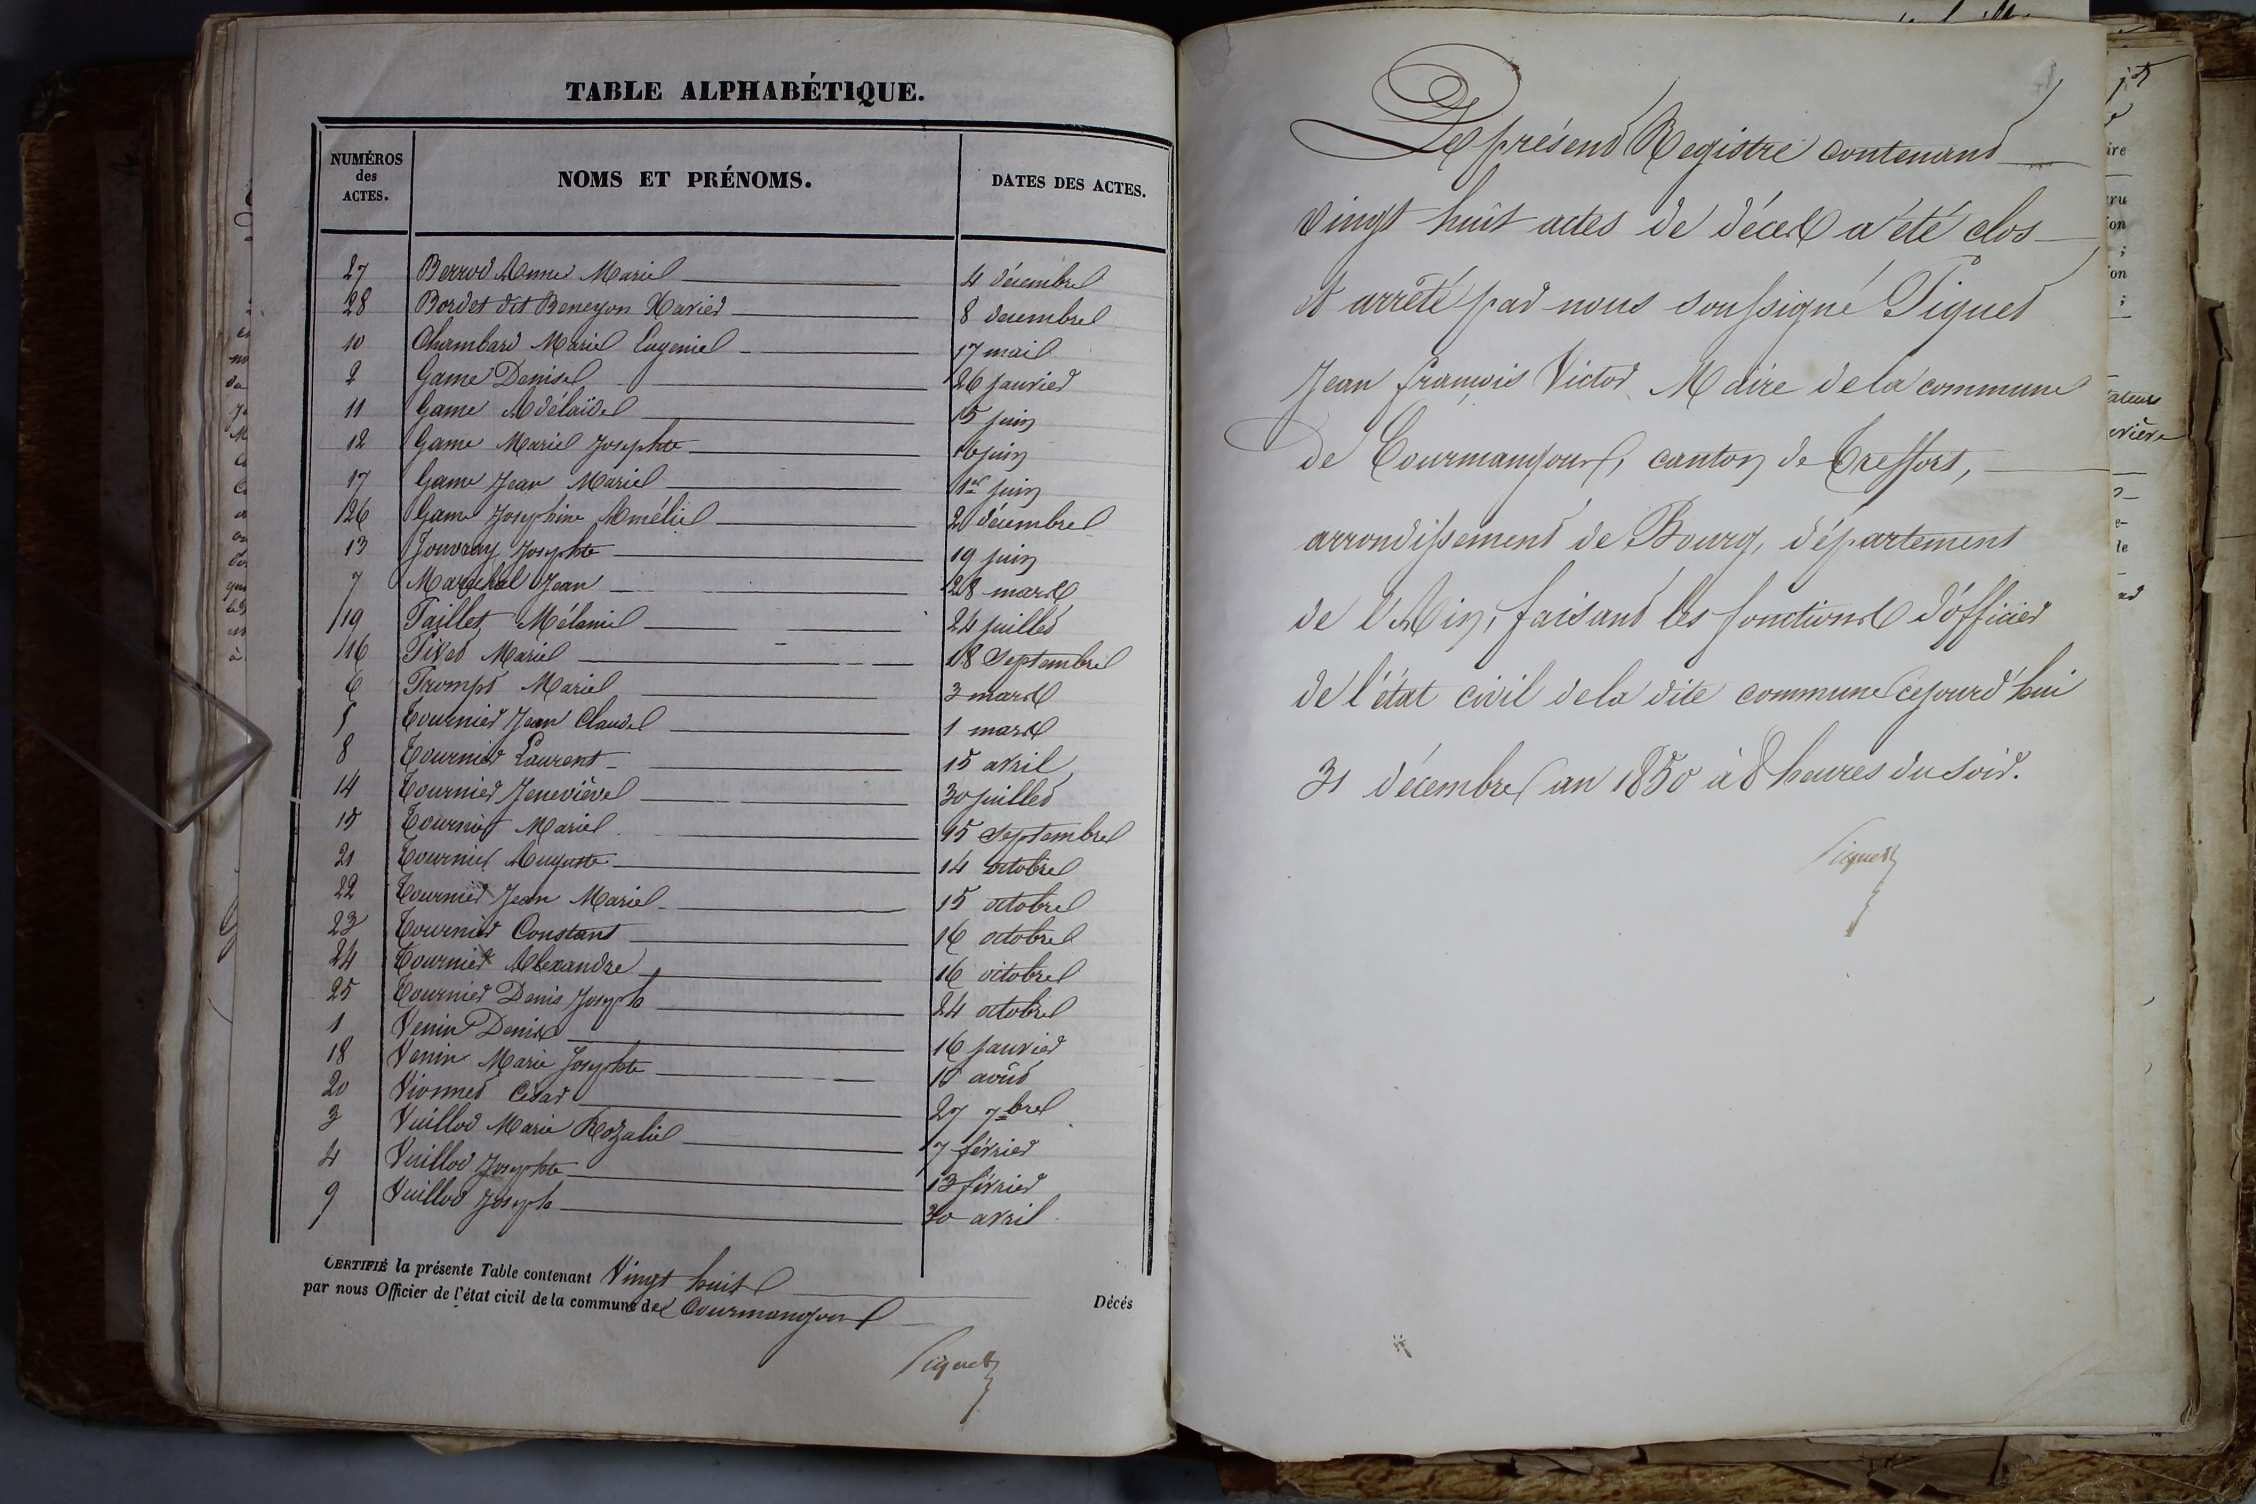 TABLE ALPHABÉTIQUE.
NUMÉROS des ACTES. NOMS ET PRÉNOMS. DATES DES ACTES.
27 Berrod Anne Marie 4 décembre
28 Bordet dit Beneyon Xavier 8 decembre
10 Chambard Marie Eugenie 17 mai
2 Game Denise 26 janvier
11 Game Adélaïde 15 juin
12 Game Marie Josephte 16 juin
17 Game Jean Marie 1er juin
26 Game Joséphine Amélie 2 décembre
13 Jouvray Josephte 19 juin
7 Maréchal Jean 28 mars
19 Paillet Mélanie 24 juillet
16 Pivet Marie 18 Septembre
6 Promps Marie 3 mars
5 Tournier Jean Claude 1 mars
8 Tournier Laurent 15 avril
14 Tournier Jeneviève 30 juillet
15 Tournier Marie 15 Septembre
21 Tournier Auguste 14 octobre
22 Tournier Jean Marie 15 octobre
23 Tournier Constant 16 octobre
24 Tournier Alexandre 16 octobre
25 Tournier Denis Joseph 24 octobre
1 Venin Denis 16 janvier
18 Venin Marie Josephte août
20 Vionnet César 27 7bre
3 Vuillod Marie Rozalie 7 février
4 Vuillod Josephte 13 février
9 Vuillod Joseph 30 avril
CERTIFIÉ la présente Table contenant Vingt huit Décés
par nous Officier de l'état civil de la commune de Courmangoux
Piquet
Le présent Registre contenant
vingt huit actes de décès a été clos
et arrêté par nous soussigné Piquet
Jean françois Victor Maire de la commune
de Courmangoux, canton de Treffort,
arrondissement de Bourg, département
de l'Ain, faisant les fonctions d'officier
de l'état civil de la dite commune cejourd'hui
31 décembre an 1850 à 8 heures du soir.
Piquet